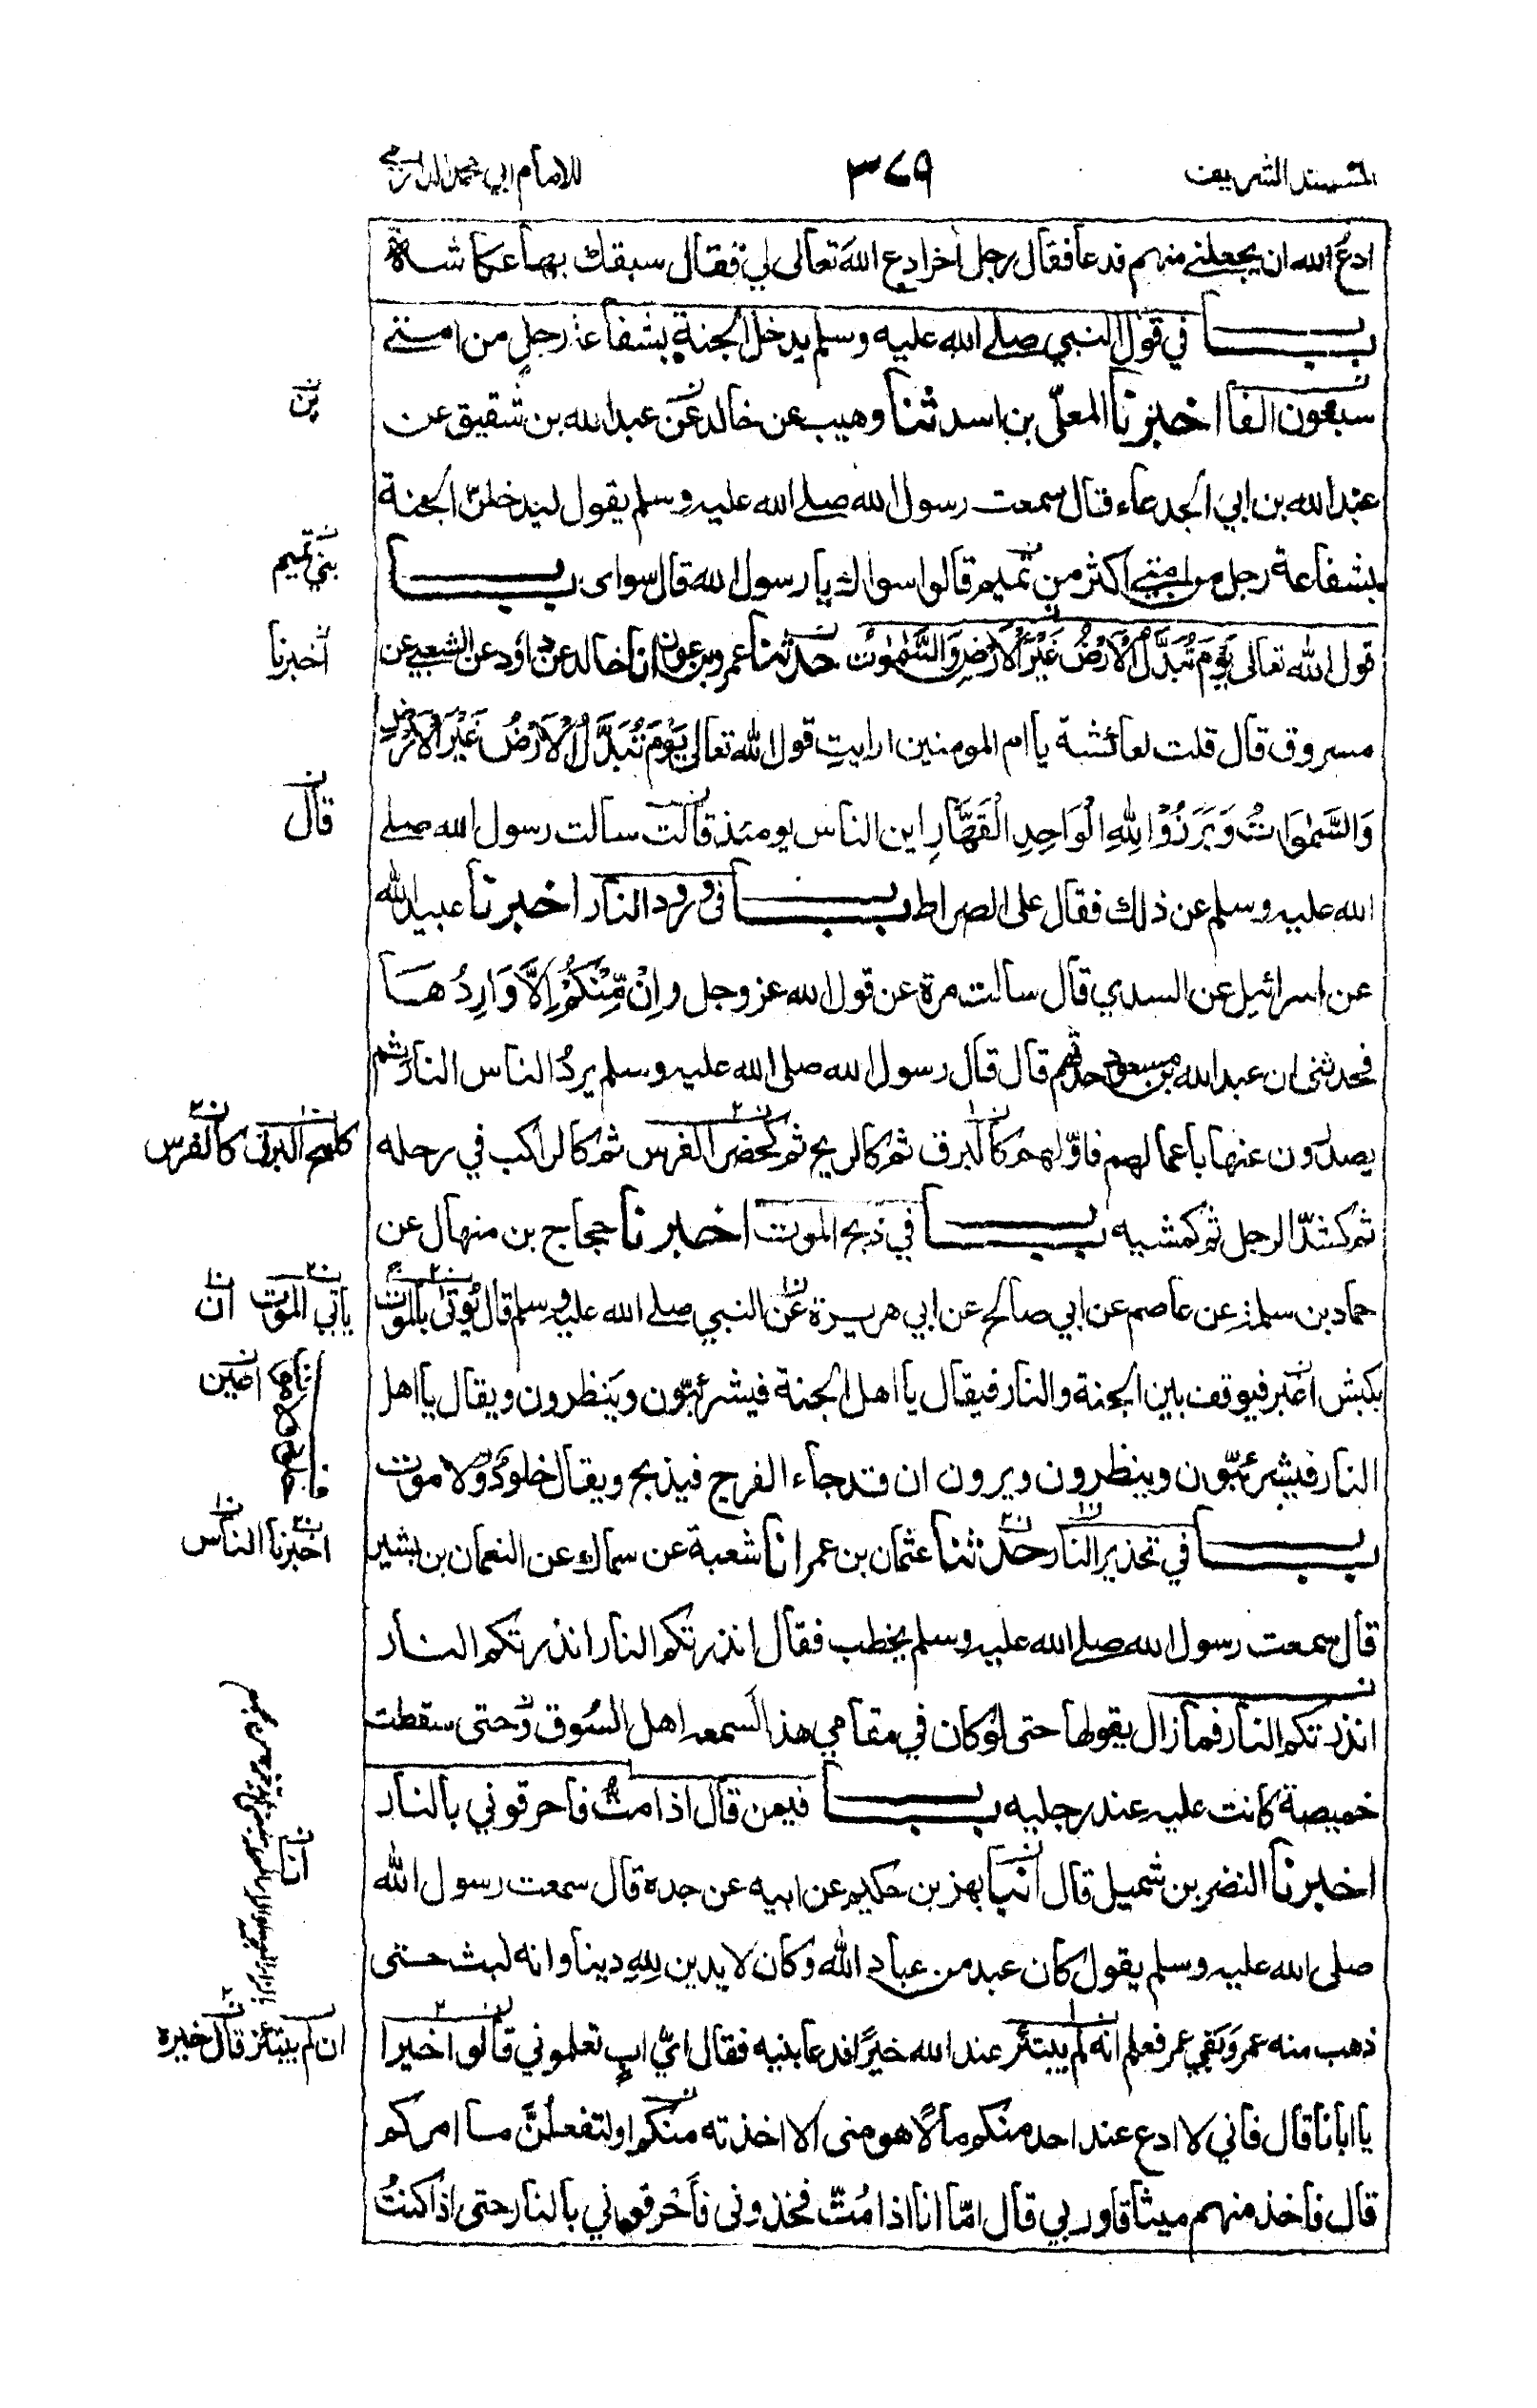 المسند الشريف
٣٧٩
للامام ابي محمد الدارمي
ادع الله ان يجعلني منهم فدعا فقال رجل اخر ادع الله تعالى لي فقال سبقك بها عكاشة
باب في قول النبي صلى الله عليه وسلم يدخل الجنة بشفاعة رجل من امتي
سبعون الفا اخبرنا المعلّى بن اسد ثنا وهيب عن خالد عن عبد الله بن شقيق عن
بن
عبد الله بن ابي الجدعاء قال سمعت رسول الله صلى الله عليه وسلم يقول ليدخلن الجنة
بشفاعة رجل من امتي اكثر من تميم قالوا سواك يا رسول الله قال سواى باب
بني تميم
قول الله تعالى يَوْمَ تُبَدَّلُ الْاَرْضُ غَيْرَ الْاَرْضِ وَالسَّمٰوٰتُ حدثنا عمرو بن عون انا خالد عن داؤد عن الشعبي عن
اخبرنا
مسروق قال قلت لعائشة يا ام المومنين ارايتِ قول الله تعالى يَوْمَ تُبَدَّلُ الْاَرْضُ غَيْرَ الْاَرْضِ
وَالسَّمٰوَاتُ وَبَرَزُوْا لِلّٰهِ الْوَاحِدِ الْقَهَّارِ اين الناس يومئذ قالت سالت رسول الله صلى
قال
الله عليه وسلم عن ذلك فقال على الصراط باب فى ورود النار اخبرنا عبيد الله
عن اسرائيل عن السدي قال سالت مرة عن قول الله عز وجل وَاِنْ مِّنْكُمْ اِلَّا وَارِدُهَا
فحدثنى ان عبد الله بن مسعود حدثهم قال قال رسول الله صلى الله عليه وسلم يردُ الناس النار ثم
يصدرون عنها باعمالهم فاوّلهم كالبرق ثم كالريح ثم كحضر الفرس ثم كالراكب في رحله
كلمح البرق كالفرس
ثم كشدّ الرجل ثم كمشيه باب في ذبح الموت اخبرنا حجاج بن منهال عن
حماد بن سلمة عن عاصم عن ابي صالح عن ابي هريرة عن النبي صلى الله عليه وسلم قال يُوتٰى بالموت
ياتي الموت ان
بكبش اغبر فيوقف بين الجنة والنار فيقال يا اهل الجنة فيشرئبّون وينظرون ويقال يا اهل
النار فيشرئبّون وينظرون ويرون ان قد جاء الفرج فيذبح ويقال خلود ولا موت
باب في تحذير النار حدثنا عثمان بن عمر انا شعبة عن سماك عن النعمان بن بشير
اخبرنا الناس
قال سمعت رسول الله صلى الله عليه وسلم يخطب فقال انذرتكم النار انذرتكم النار
انذرتكم النار فما زال يقولها حتى لو كان في مقامي هذا لسمعه اهل السُوق وحتى سقطت
خميصة كانت عليه عند رجليه باب فيمن قال اذا متُّ فاحرقوني بالنار
اخبرنا النضر بن شميل قال انبا بهز بن حكيم عن ابيه عن جده قال سمعت رسول الله
انا
صلى الله عليه وسلم يقول كان عبد من عباد الله وكان لا يدين لِلّٰهِ دينا وانه لبث حتى
ذهب منه عمر وَبَقِي عمر فعلم انه لم يبتئر عند الله خيرًا فدعا بنيه فقال ايّ ابٍ تعلموني قالوا خيرا
ان لم يبتئر قال خيره
يا ابانا قال فاني لا ادع عند احد منكم مالًا هو منى الا اخذته منكم او لتفعلُنَّ ما امركم
قال فاخذ منهم ميثاقا وربي قال امّا انا اذا مُتّ فخذونى فَاَحْرِقوني بالنار حتى اذا كنتُ